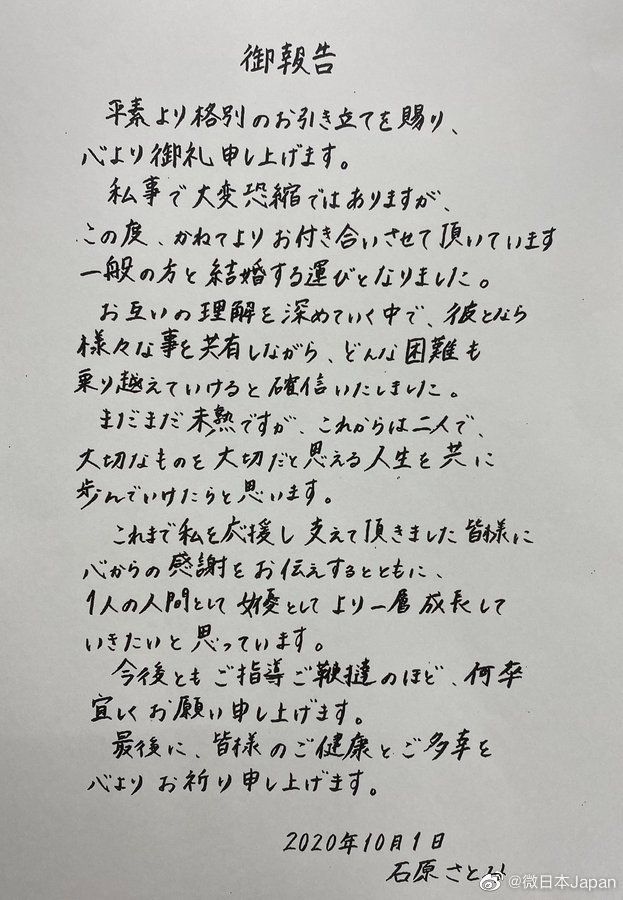 御報告
平素より格別のお引き立てを賜り、
心より御礼申し上げます。
私事で大変恐縮ではありますが、
この度、かねてよりお付き合いさせて頂いています
一般の方と結婚する運びとなりました。
お互いの理解を深めていく中で、彼となら
様々な事を共有しながら、どんな困難も
乗り越えていけると確信いたしました。
まだまだ未熟ですが、これからは二人で、
大切なものを大切だと思える人生を共に
歩んでいけたらと思います。
これまで私を応援し支えて頂きました皆様に
心からの感謝をお伝えするとともに、
1人の人間として女優としてより一層成長して
いきたいと思っています。
今後ともご指導ご鞭撻のほど、何卒
宜しくお願い申し上げます。
最後に、皆様のご健康とご多幸を
心よりお祈り申し上げます。
2020年10月1日
石原さとみ
@微日本Japan